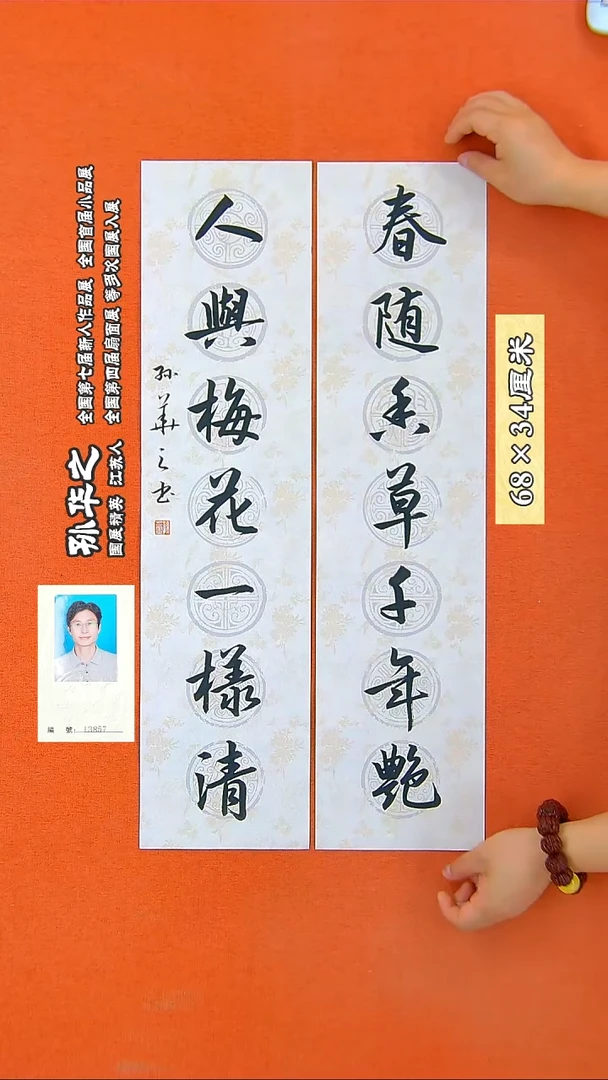 春随香草千年艷
人與梅花一樣清
孙華之书
68×34厘米
孙华之
国展精英 江苏人
全国第七届新人作品展 全国首届小品展
全国第四届扇面展 等多次国展入展
編 號: 13857